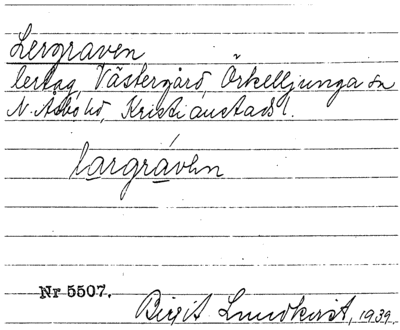 Lergraven
lertag, Västergård, Örkelljunga sn
N. Åsbo hd, Kristianstads l.
largrávən
Nr 5507.
Birgit Lundkvist, 1939.